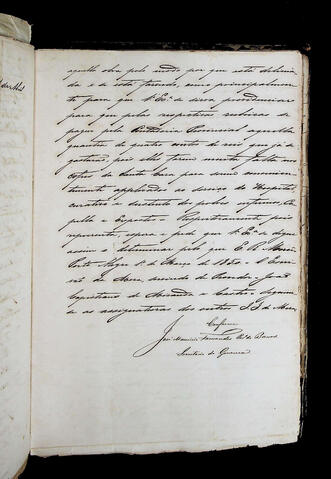 aquella obra pelo modo por que está delinia
da e se está fazendo, como principalmen
te para que V. Exª. se digne providenciar
para que pelas respectivas rubricas se
pague pela Thesouraria Provincial aquella
quantia de quatro contos de reis que já de
gastou pois ella forma muita falta no
cofre da Santa Casa para serem
applicados ao serviço do Hospital
curativo e sustento dos pobres enfermos, Ca
pella e Expostos - Respeitosamente pois
representa, espera e pede que V. Exª. se digne
assim o determinar pelo que E. R. Mercê
Porto Alegre 1º de Março de 1850 - O Escri
vão da Mesa, servindo de Provedor - João
Capistrano de Miranda e Castro - Seguem
se as assignaturas dos outros I I da Mesa
Conforme
José Mauricio Fernandes Pª. de Barros
Secretario do Governo